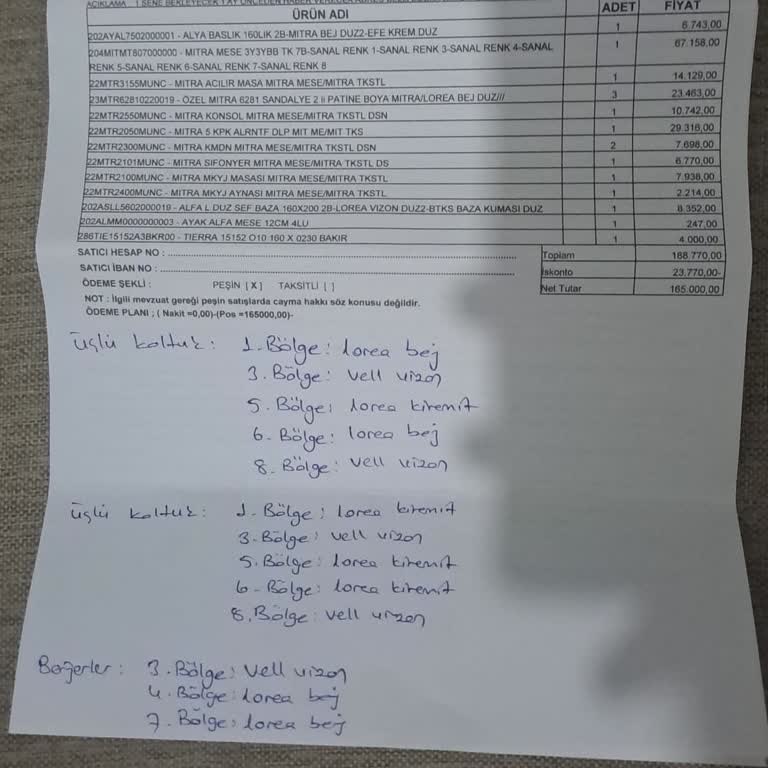 AÇIKLAMA 1 SENE BEKLEYECEK 1 AY ÖNCEDEN HABER
ÜRÜN ADI ADET FİYAT
202AYAL7502000001 - ALYA BASLIK 160LIK 2B-MITRA BEJ DUZ2-EFE KREM DUZ 1 6.743,00
204MITMT807000000 - MITRA MESE 3Y3YBB TK 7B-SANAL RENK 1-SANAL RENK 3-SANAL RENK 4-SANAL 1 67.158,00
RENK 5-SANAL RENK 6-SANAL RENK 7-SANAL RENK 8
22MTR3155MUNC - MITRA ACILIR MASA MITRA MESE/MITRA TKSTL 1 14.129,00
23MTR62810220019 - ÖZEL MITRA 6281 SANDALYE 2 li PATINE BOYA MITRA/LOREA BEJ DUZ/// 3 23.463,00
22MTR2550MUNC - MITRA KONSOL MITRA MESE/MITRA TKSTL DSN 1 10.742,00
22MTR2050MUNC - MITRA 5 KPK ALRNTF DLP MIT ME/MIT TKS 1 29.316,00
22MTR2300MUNC - MITRA KMDN MITRA MESE/MITRA TKSTL DSN 2 7.698,00
22MTR2101MUNC - MITRA SIFONYER MITRA MESE/MITRA TKSTL DS 1 6.770,00
22MTR2100MUNC - MITRA MKYJ MASASI MITRA MESE/MITRA TKSTL 1 7.938,00
22MTR2400MUNC - MITRA MKYJ AYNASI MITRA MESE/MITRA TKSTL 1 2.214,00
202ASLL5602000019 - ALFA L DUZ SEF BAZA 160X200 2B-LOREA VIZON DUZ2-BTKS BAZA KUMASI DUZ 1 8.352,00
202ALMM0000000003 - AYAK ALFA MESE 12CM 4LU 1 247,00
286TIE15152A3BKR00 - TIERRA 15152 O10 160 X 0230 BAKIR 1 4.000,00
SATICI HESAP NO : Toplam 188.770,00
SATICI İBAN NO : İskonto 23.770,00-
ÖDEME ŞEKLİ : PEŞİN [ X ] TAKSİTLİ [ ] Net Tutar 165.000,00
NOT : İlgili mevzuat gereği peşin satışlarda cayma hakkı söz konusu değildir.
ÖDEME PLANI ; ( Nakit =0,00)-(Pos =165000,00)-
üçlü koltuk : 1. Bölge : lorea bej
3. Bölge : vell vizon
5. Bölge : lorea kiremit
6. Bölge : lorea bej
8. Bölge : vell vizon
üçlü koltuk : 1. Bölge : lorea kiremit
3. Bölge : vell vizon
5. Bölge : lorea kiremit
6. Bölge : lorea kiremit
8. Bölge : vell vizon
Berjerler : 3. Bölge : vell vizon
4. Bölge : lorea bej
7. Bölge : lorea bej